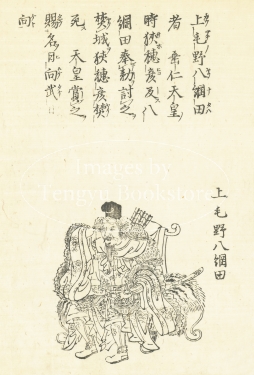 上毛野八綱田
者 垂仁天皇
時狹穂彦反八
綱田奉勅討之
焚城狹穂彦焚
死 天皇賞之
賜名日向武日
向
上毛野八綱田
Images by
Bookstore